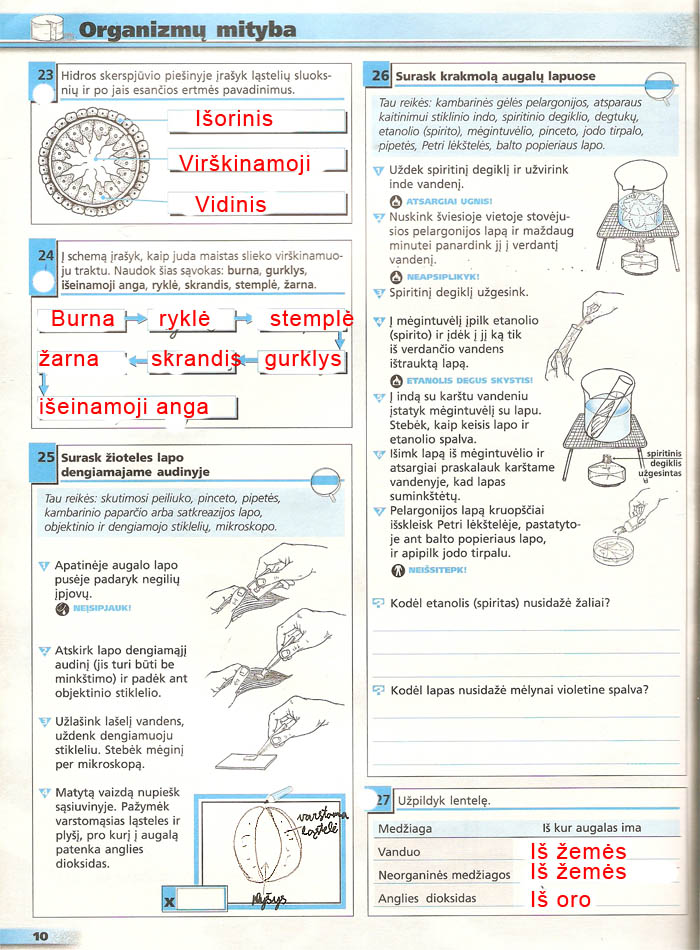 Organizmų mityba
23 Hidros skerspjūvio piešinyje įrašyk ląstelių sluoks-
nių ir po jais esančios ertmės pavadinimus.
Išorinis
Virškinamoji
Vidinis
24 Į schemą įrašyk, kaip juda maistas slieko virškinamuo-
ju traktu. Naudok šias sąvokas: burna, gurklys,
išeinamoji anga, ryklė, skrandis, stemplė, žarna.
Burna ryklė stemplė
žarna skrandis gurklys
išeinamoji anga
25 Surask žioteles lapo
dengiamajame audinyje
Tau reikės: skutimosi peiliuko, pinceto, pipetės,
kambarinio paparčio arba satkreazijos lapo,
objektinio ir dengiamojo stiklelių, mikroskopo.
1 Apatinėje augalo lapo
pusėje padaryk negilių
įpjovų.
NEĮSIPJAUK!
2 Atskirk lapo dengiamąjį
audinį (jis turi būti be
minkštimo) ir padėk ant
objektinio stiklelio.
3 Užlašink lašelį vandens,
uždenk dengiamuoju
stikleliu. Stebėk mėginį
per mikroskopą.
4 Matytą vaizdą nupiešk
sąsiuvinyje. Pažymėk
varstomąsias ląsteles ir
plyšį, pro kurį į augalą
patenka anglies
dioksidas.
varstomo
ląstelė
plyšys
x
26 Surask krakmolą augalų lapuose
Tau reikės: kambarinės gėlės pelargonijos, atsparaus
kaitinimui stiklinio indo, spiritinio degiklio, degtukų,
etanolio (spirito), mėgintuvėlio, pinceto, jodo tirpalo,
pipetės, Petri lėkštelės, balto popieriaus lapo.
1 Uždek spiritinį degiklį ir užvirink
inde vandenį.
ATSARGIAI UGNIS!
2 Nuskink šviesioje vietoje stovėju-
sios pelargonijos lapą ir maždaug
minutei panardink jį į verdantį
vandenį.
NEAPSIPLIKYK!
3 Spiritinį degiklį užgesink.
4 Į mėgintuvėlį įpilk etanolio
(spirito) ir įdėk į jį ką tik
iš verdančio vandens
ištrauktą lapą.
ETANOLIS DEGUS SKYSTIS!
5 Į indą su karštu vandeniu
įstatyk mėgintuvėlį su lapu.
Stebėk, kaip keisis lapo ir
etanolio spalva.
6 Išimk lapą iš mėgintuvėlio ir
atsargiai praskalauk karštame
vandenyje, kad lapas
suminkštėtų.
spiritinis
degiklis
užgesintas
7 Pelargonijos lapą kruopščiai
išskleisk Petri lėkštelėje, pastatyto-
je ant balto popieriaus lapo,
ir apipilk jodo tirpalu.
NEIŠSITEPK!
Kodėl etanolis (spiritas) nusidažė žaliai?
Kodėl lapas nusidažė mėlynai violetine spalva?
27 Užpildyk lentelę.
Medžiaga Iš kur augalas ima
Vanduo Iš žemės
Neorganinės medžiagos Iš žemės
Anglies dioksidas Iš oro
10